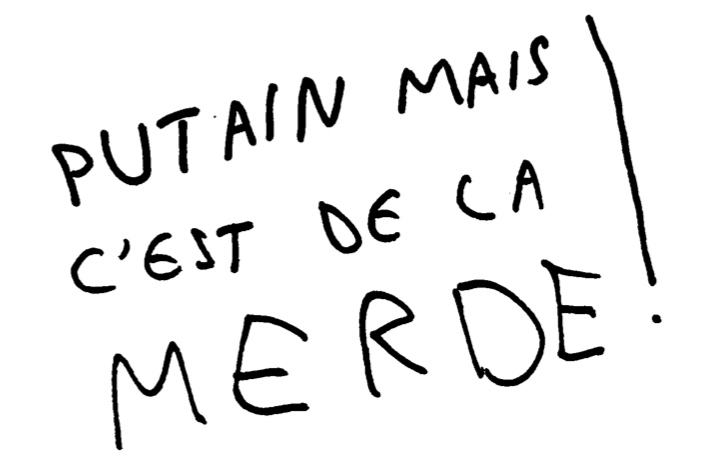 PUTAIN MAIS
C'EST DE LA
MERDE !